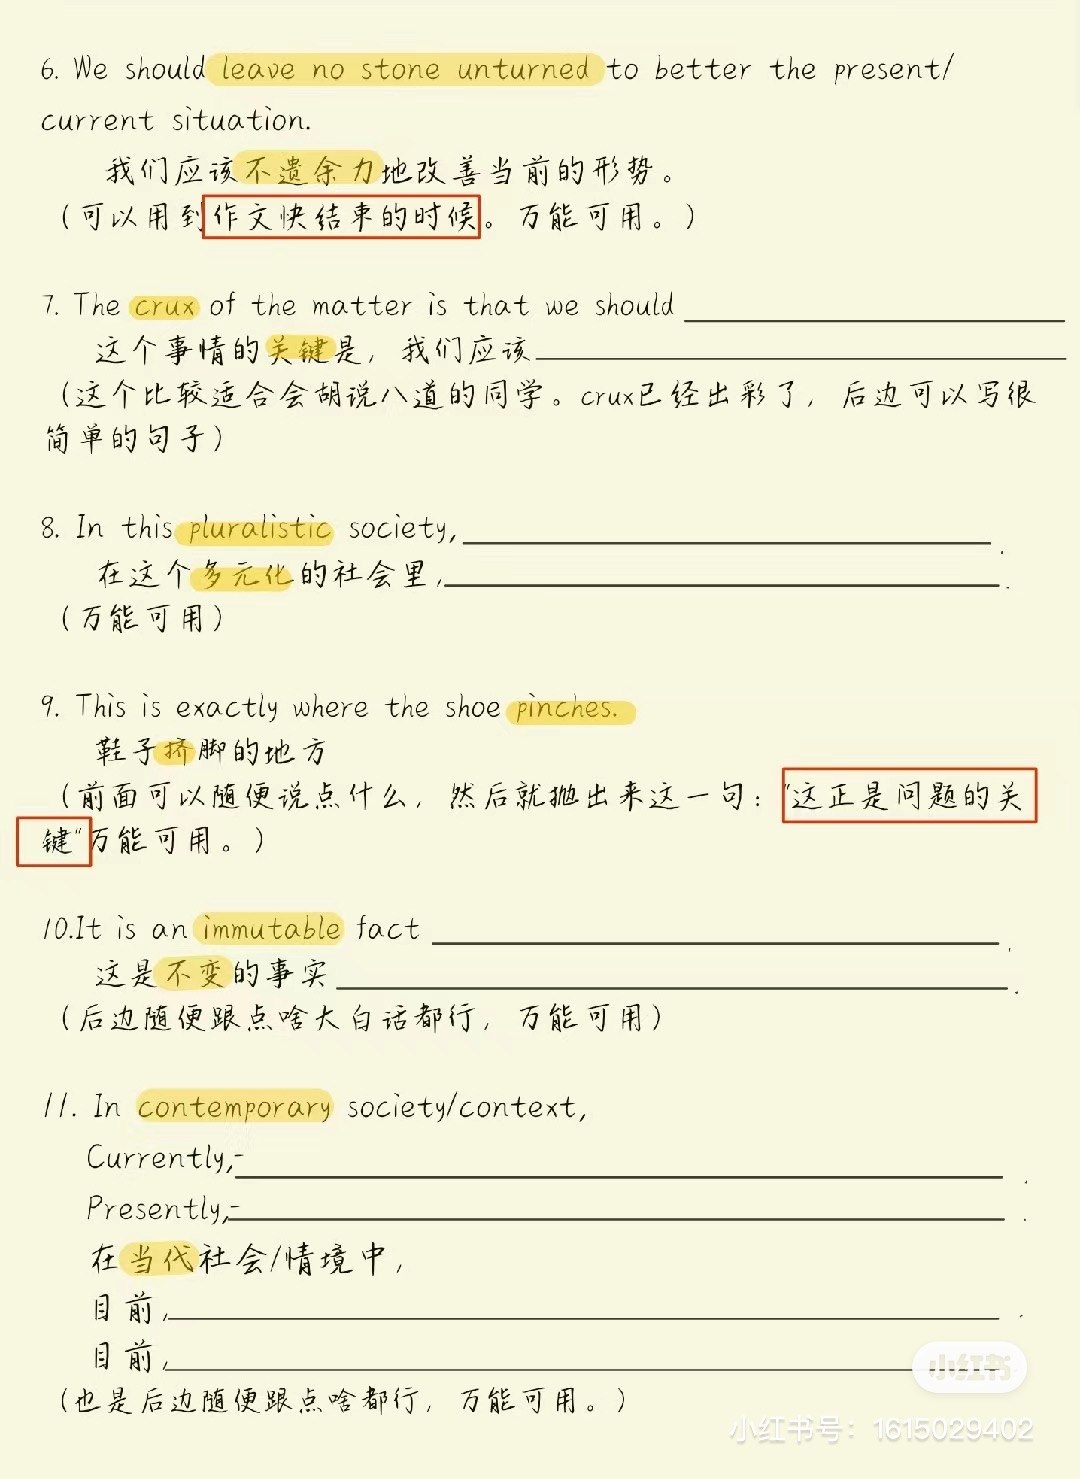 6. We should leave no stone unturned to better the present/
current situation.
我们应该不遗余力地改善当前的形势。
（可以用到作文快结束的时候。万能可用。）
7. The crux of the matter is that we should
这个事情的关键是，我们应该
（这个比较适合会胡说八道的同学。crux已经出彩了，后边可以写很
简单的句子）
8. In this pluralistic society, .
在这个多元化的社会里, .
（万能可用）
9. This is exactly where the shoe pinches.
鞋子挤脚的地方
（前面可以随便说点什么，然后就抛出来这一句："这正是问题的关
键"万能可用。）
10.It is an immutable fact .
这是不变的事实 .
（后边随便跟点啥大白话都行，万能可用）
11. In contemporary society/context,
Currently,- .
Presently,- .
在当代社会/情境中,
目前, .
目前,
（也是后边随便跟点啥都行，万能可用。）
小红书
小红书号：1615029402